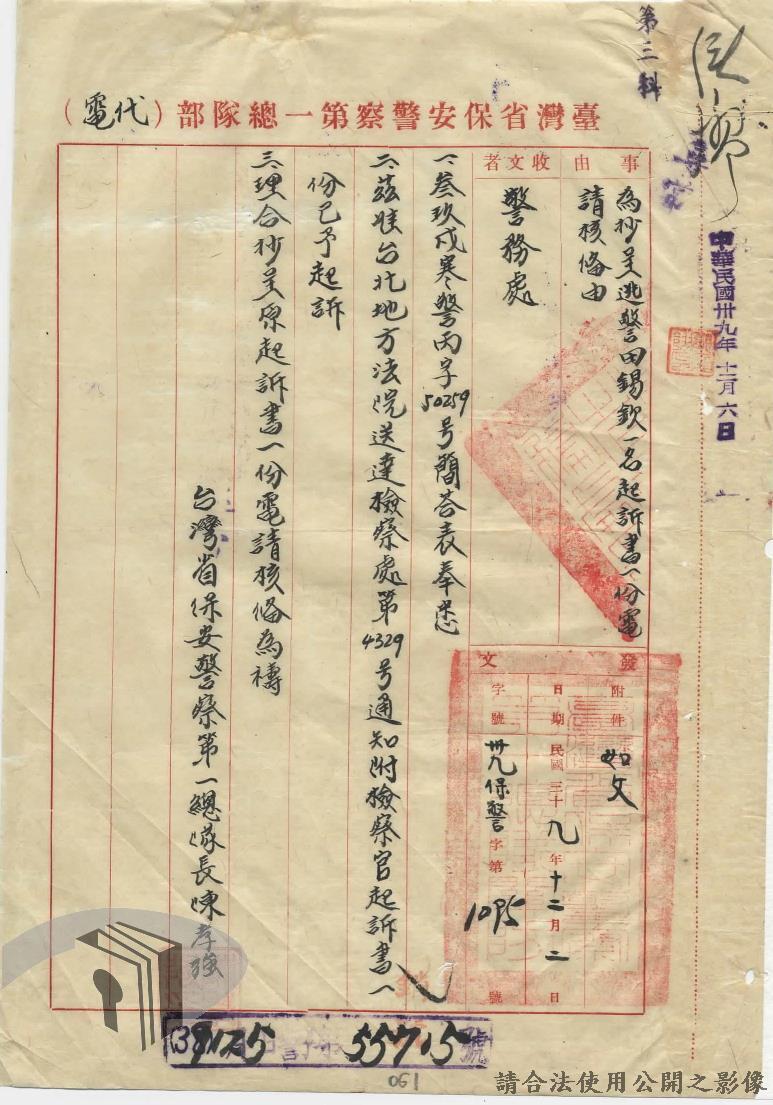 第三科
中華民國卅九年十二月六日
臺灣省保安警察第一總隊部(代電)
事由
為抄呈逃警田錫欽一名起訴書一份電
請核備由
收文者
警務處
發文
附件
如文
日期 民國三十九年十二月二日
字號
卅九保警字第1095號
一、叁玖戌寒警丙字50259号簡荅表奉悉
二、茲准台北地方法院送達檢察處第4329号通知附檢察官起訴書一
份已予起訴
三、理合抄呈原起訴書一份電請核備為禱
台灣省保安警察第一總隊長陳孝強
55715號
061
請合法使用公開之影像